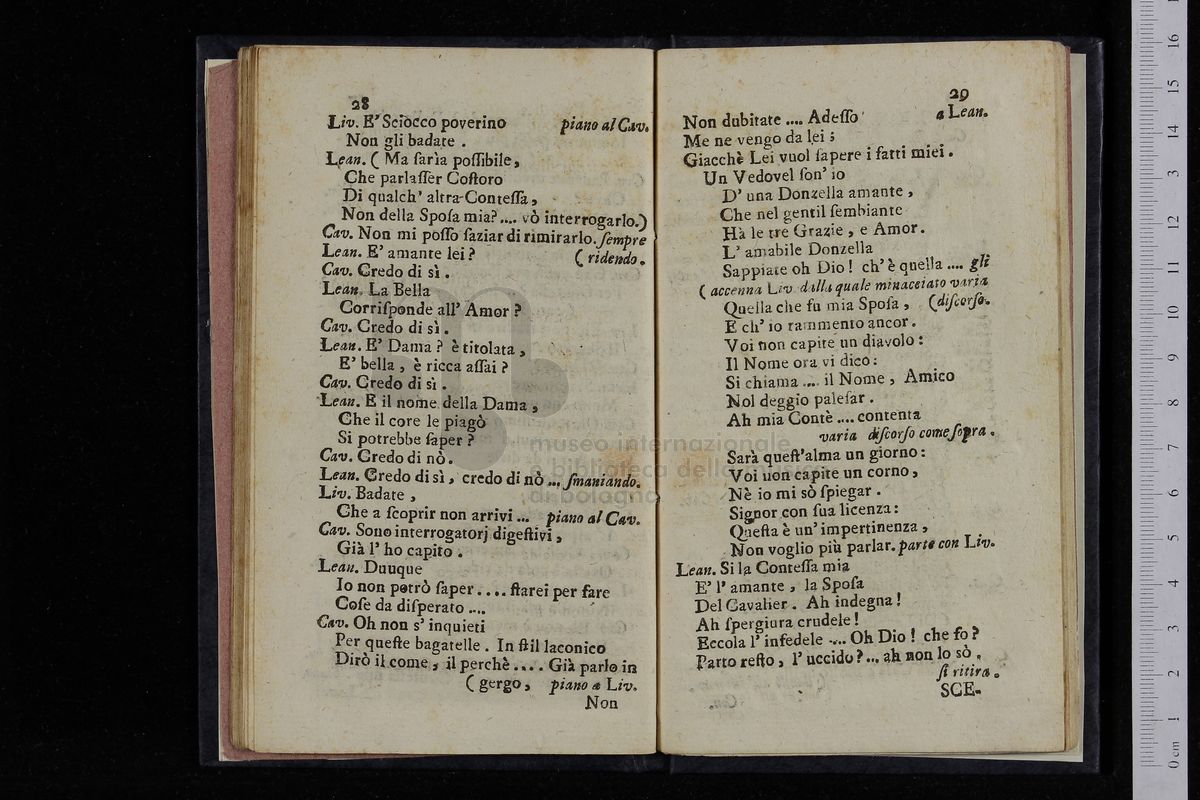 28
Liv. E' Sciocco poverino piano al Cav.
Non gli badate .
Lean. ( Ma ſarìa poſſibile,
Che parlaſſer Coſtoro
Di qualch' altra Conteſſa,
Non della Spoſa mia?.... vò interrogarlo.)
Cav. Non mi poſſo ſaziar di rimirarlo. ſempre
Lean. E' amante lei ? ( ridendo.
Cav. Credo di sì .
Lean. La Bella
Corriſponde all' Amor ?
Cav. Credo di sì .
Lean. E' Dama ? è titolata ,
E' bella , è ricca aſſai ?
Cav. Credo di sì .
Lean. E il nome della Dama ,
Che il core le piagò
Si potrebbe ſaper ?
Cav. Credo di nò.
Lean. Credo di sì , credo di nò ... ſmaniando.
Liv. Badate ,
Che a ſcoprir non arrivi ... piano al Cav.
Cav. Sono interrogatorj digeſtivi ,
Già l' ho capito .
Lean. Dunque
Io non potrò ſaper .... ſtarei per fare
Coſe da diſperato ....
Cav. Oh non s' inquieti
Per queſte bagatelle . In ſtil laconico
Dirò il come , il perchè .... Già parlo in
( gergo, piano a Liv.
Non
29
Non dubitate .... Adeſſo a Lean.
Me ne vengo da lei ;
Giacchè Lei vuol ſapere i fatti miei .
Un Vedovel ſon' io
D' una Donzella amante ,
Che nel gentil ſembiante
Hà le tre Grazie , e Amor.
L' amabile Donzella
Sappiate oh Dio ! ch' è quella .... gli
( accenna Liv. dalla quale minacciato varia
Quella che fu mia Spoſa , (diſcorſo.
E ch' io rammento ancor.
Voi non capite un diavolo :
Il Nome ora vi dico :
Si chiama .... il Nome , Amico
Nol deggio paleſar .
Ah mia Contè .... contenta
varia diſcorſo come ſopra .
Sarà queſt'alma un giorno :
Voi non capite un corno ,
Nè io mi sò ſpiegar .
Signor con ſua licenza :
Queſta è un' impertinenza ,
Non voglio più parlar. parte con Liv.
Lean. Si la Conteſſa mia
E' l' amante , la Spoſa
Del Cavalier . Ah indegna !
Ah ſpergiura crudele !
Eccola l' infedele .... Oh Dio ! che fo ?
Parto reſto , l' uccido ?... ah non lo sò .
ſi ritira .
SCE-
museo internazionale
e biblioteca della musica
di bologna
0 cm 1 2 3 4 5 6 7 8 9 10 11 12 13 14 15 16